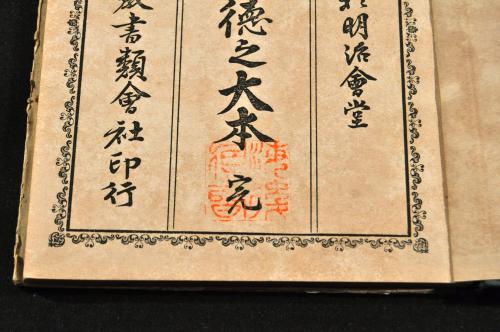 明治會堂
德之大本 完
書類會社印行